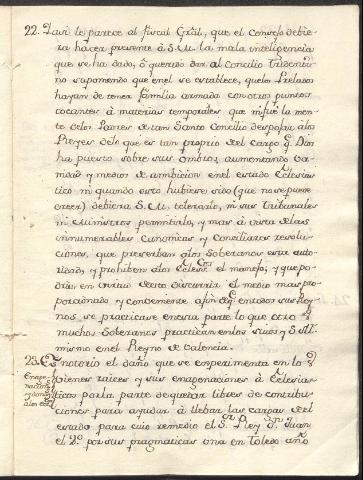 22. Y assi le parece al fiscal Gràl, que el consejo debie-
ra hacer presente à S.M. la mala inteligencia
que se ha dado, ò querido dar al Concilio Tridenti-
no suponiendo que en el se establece, que los Prelados
hayan de tener familia armada con otros puntos
tocantes à materias temporales que ni fuè la men-
te de los Padres de tan Santo Concilio despojar à los
Reyes de lo que es tan proprio del cargo q. Dios
ha puesto sobre sus ombros, aumentando va-
nidad y medios de ambicion en el estado Ecclesias-
tico ni quando esto hubiese sido (que no se puede
creer) debiera S.M. tolerarlo, ni sus Tribunales
ni Ministros permitirlo, y mas à vista de las
innumerables Canonicas y Conciliares resolu-
ciones, que preserban à los Soberanos esta auto-
ridad, y prohiben à los Eclesi.cos el manejo; y que po-
dria en virtud de esto discurrir el medio mas pro-
porcionado y combeniente à fin de q. en todos sus Rey-
nos se practicase en esta parte lo que otro
muchos Soberanos practican en los suios y S.M.
mismo en el Reyno de Valencia.
23. Es notorio el daño que se experimenta en lo
Vienes raices y sus enagenaciones à Eclesias-
ticos por la parte de quedar libres de contribu-
ciones para ayudar à llebar las cargas del
estado para cuio remedio el S.or Rey D.n Juan
el 2.º por sus pragmaticas una en Toledo año